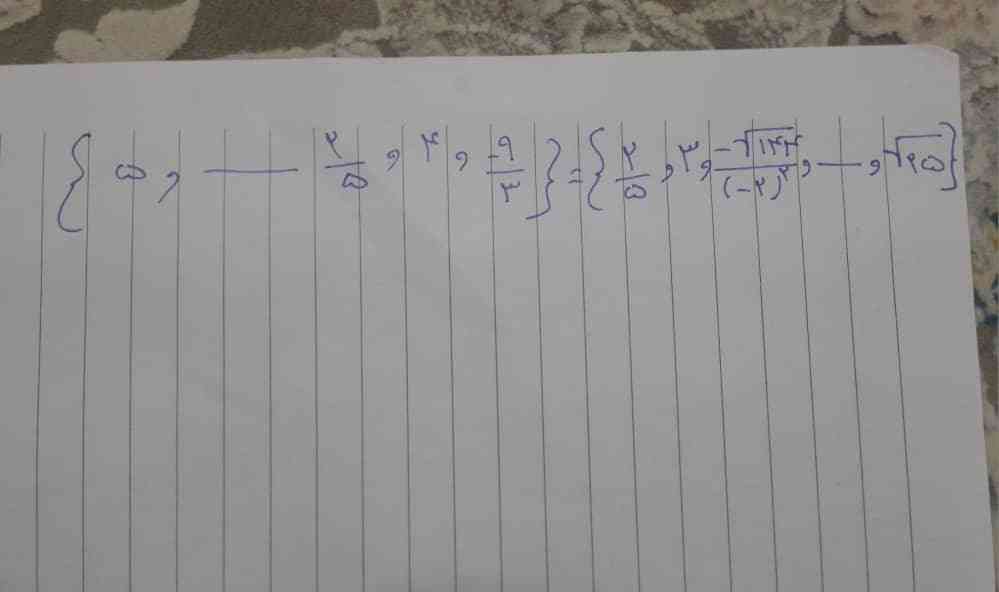 { ۵ , ___ ۲/۵ , ۴ , -۹/۳ } = { ۲/۵ , ۳ , -√۱۴۴/(-۲)^۲ , ___ , √۲۵ }